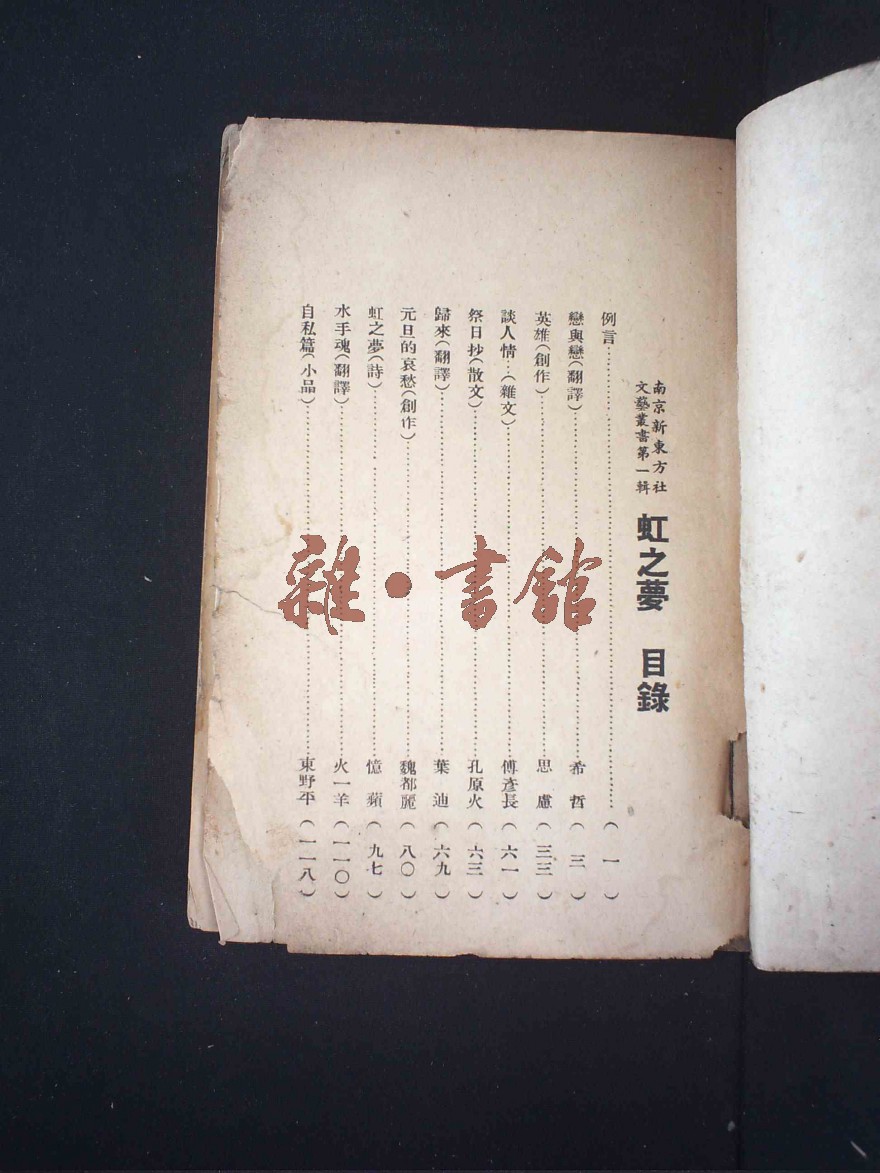 南京新東方社
文藝叢書第一輯
虹之夢　目錄
例言……（一）
戀與戀（翻譯）……希哲（三）
英雄（創作）……思慮（三三）
談人情…（雜文）……傅彥長（六一）
祭日抄（散文）……孔原火（六三）
歸來（翻譯）……葉迪（六九）
元旦的哀愁（創作）……魏都麗（八〇）
虹之夢（詩）……憶蘋（九七）
水手魂（翻譯）……火一羊（一一〇）
自私篇（小品）……東野平（一一八）
雜·書館